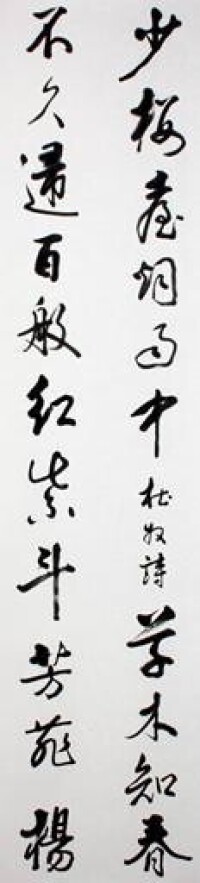 少樓臺烟雨中杜牧詩草木知春
不久歸百般紅紫斗芳菲楊